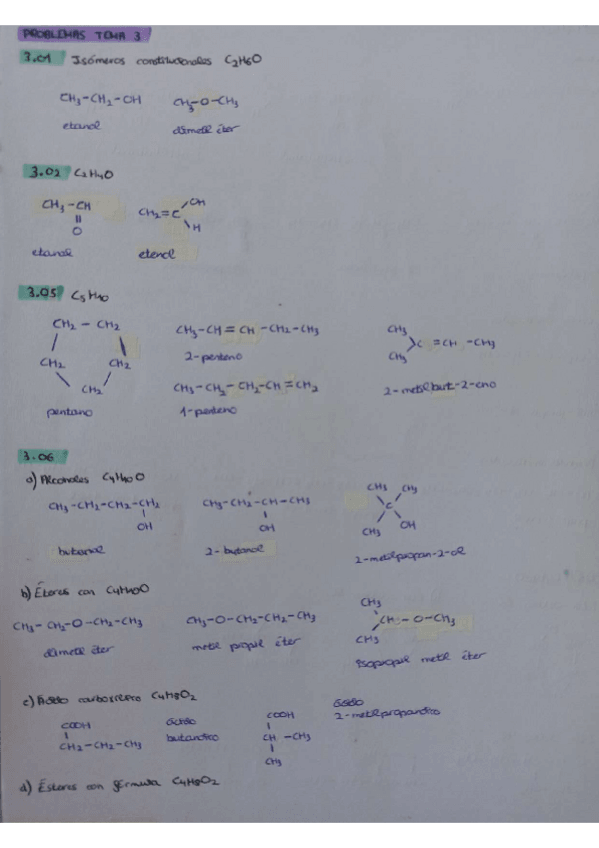 PROBLEMAS TEMA 3
3.01 Isómeros constitucionales C2H6O
CH3-CH2-OH CH3-O-CH3
etanol dimetil éter
3.02 C2H4O
CH3-CH
||
O
CH2=C
OH
H
etanal etenol
3.05 C5H10
CH2-CH2
CH2 CH2
CH2
pentano
CH3-CH=CH-CH2-CH3
2-penteno
CH3-CH2-CH2-CH=CH2
1-penteno
CH3
C=CH-CH3
CH3
2-metilbut-2-eno
3.06
a) Alcoholes C4H10O
CH3-CH2-CH2-CH2
OH
butanol
CH3-CH2-CH-CH3
OH
2-butanol
CH3 CH3
C
CH3 OH
2-metilpropan-2-ol
b) Éteres con C4H10O
CH3-CH2-O-CH2-CH3
dimetil éter
CH3-O-CH2-CH2-CH3
metil propil éter
CH3
CH-O-CH3
CH3
isopropil metil éter
c) Ácido carboxílico C4H8O2
COOH
CH2-CH2-CH3
ácido
butanoico
COOH
CH-CH3
CH3
ácido
2-metilpropanoico
d) Ésteres con fórmula C4H8O2